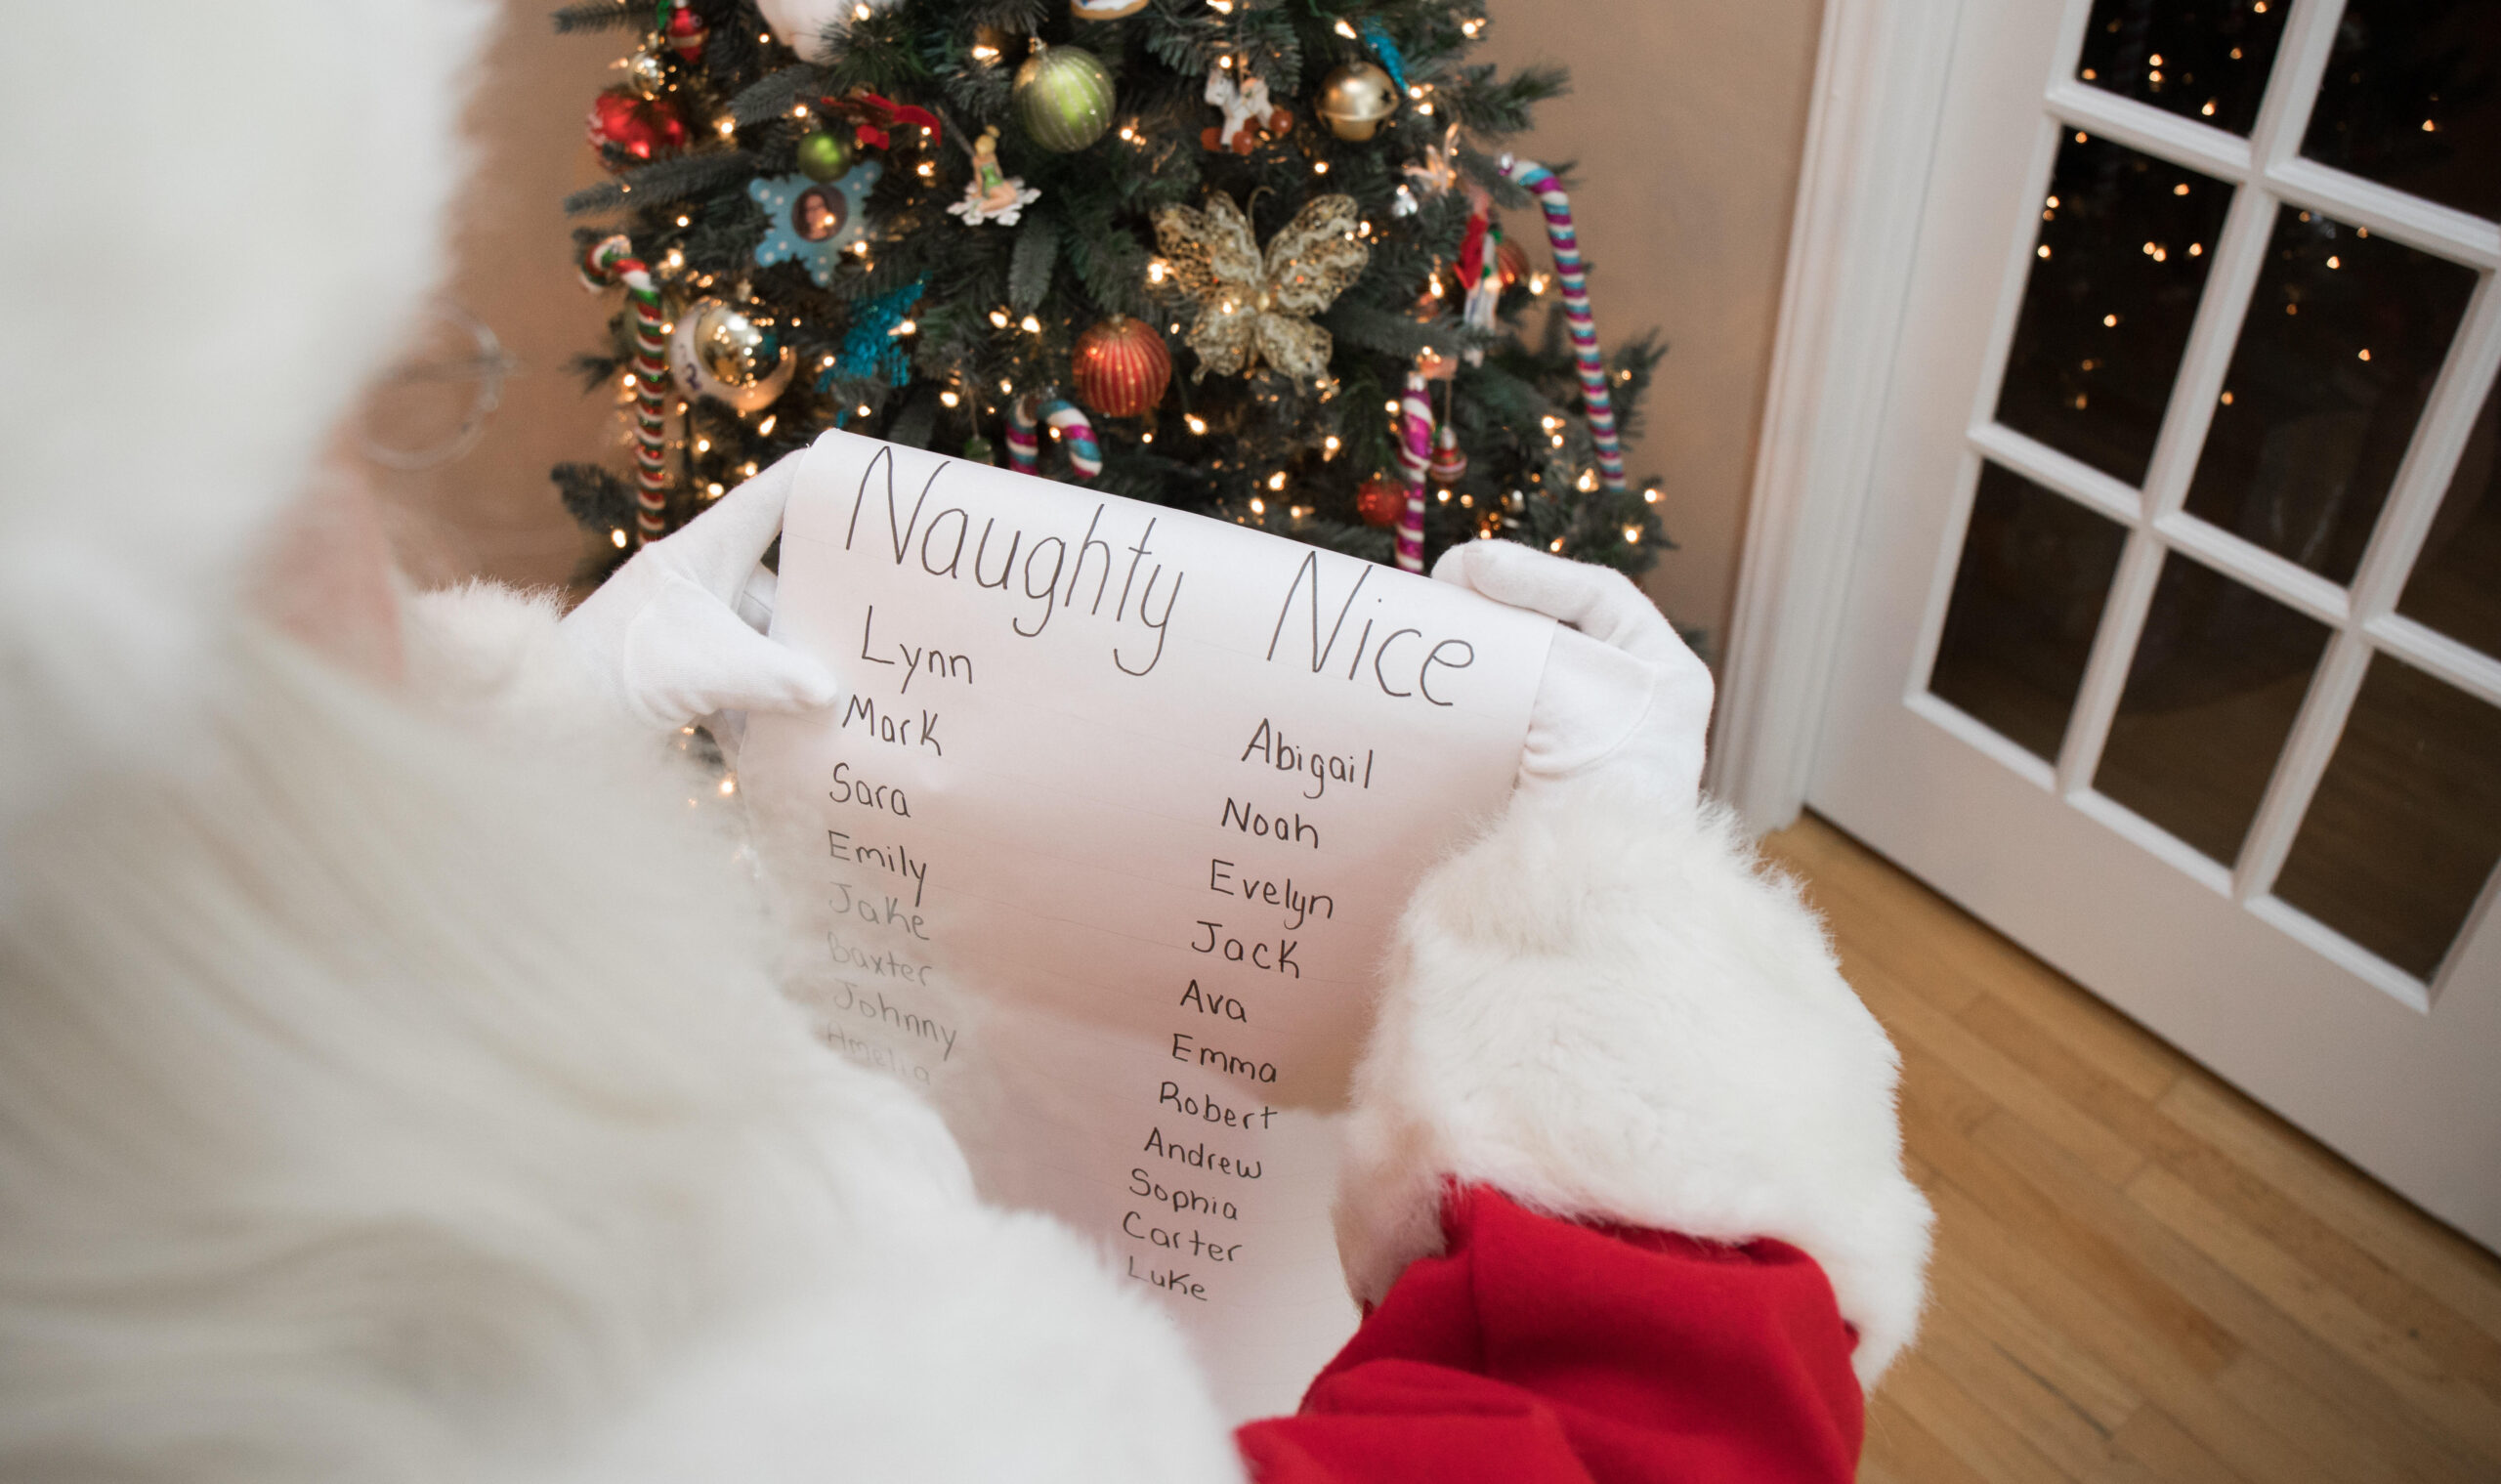 Naughty Nice
Lynn
Mark
Sara
Emily
Jake
Baxter
Johnny
Amelia
Abigail
Noah
Evelyn
Jack
Ava
Emma
Robert
Andrew
Sophia
Carter
Luke